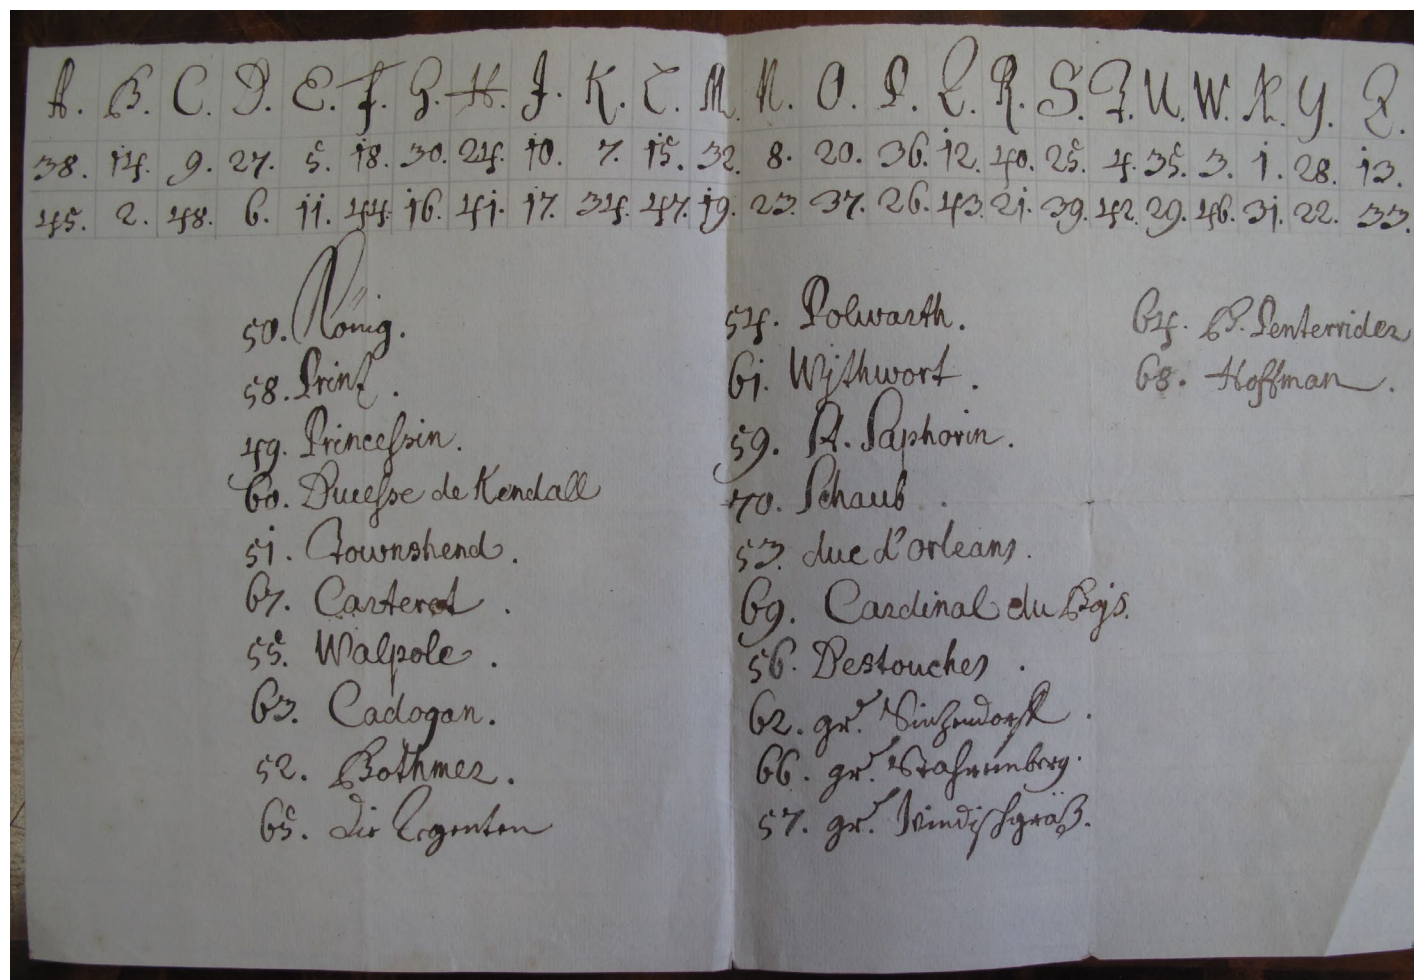 A. B. C. D. E. F. G. H. J. K. L. M. N. O. P. Q. R. S. T. U. W. X. Y. Z.
38. 14. 9. 27. 5. 18. 30. 24. 10. 7. 15. 32. 8. 20. 36. 12. 40. 25. 4. 35. 3. 1. 28. 13.
45. 2. 48. 6. 11. 44. 16. 41. 17. 34. 47. 19. 23. 37. 26. 43. 21. 39. 42. 29. 46. 31. 22. 33.
50. König.
58. Prinz.
49. Princessin.
60. Ducesse de Kendall
51. Townshend.
67. Carteret.
55. Walpole.
63. Cadogan.
52. Bothmer.
65. die Regenten
54. Polwarth.
61. Wythwort.
59. St. Saphorin.
70. Schaub.
53. duc d'Orleans.
69. Cardinal du Bojs.
56. Destouches.
62. gr. Sinzendorff.
66. gr. Stahremberg.
57. gr. Windischgräß.
64. B. Penterrider
68. Hoffman.